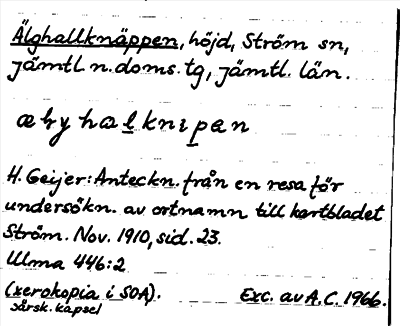 Älghallknäppen, höjd, Ström sn,
Jämtl n. doms. tg, Jämtl. län.
æhy hal knipen
H. Geijer: Anteckn. från en resa för
undersökn. av ortnamn till kartbladet
Ström. Nov. 1910, sid. 23.
Ulma 446:2
(xerokopia i SOA). Exc. av A.C. 1966.
särsk. kapsel